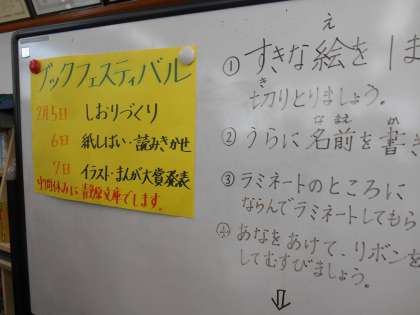 ブックフェスティバル
2月5日 しおりづくり
6日 紙しばい・読みきかせ
7日 イラスト・まんが大賞発表
中間休みに 文庫でします。
え
①すきな絵を1ま
き
切りとりましょう。
なまえ か
②うらに名前を書き
③ラミネートのところに
ならんでラミネートしてもら
④あなをあけて、リボンを
してむすびましょう。